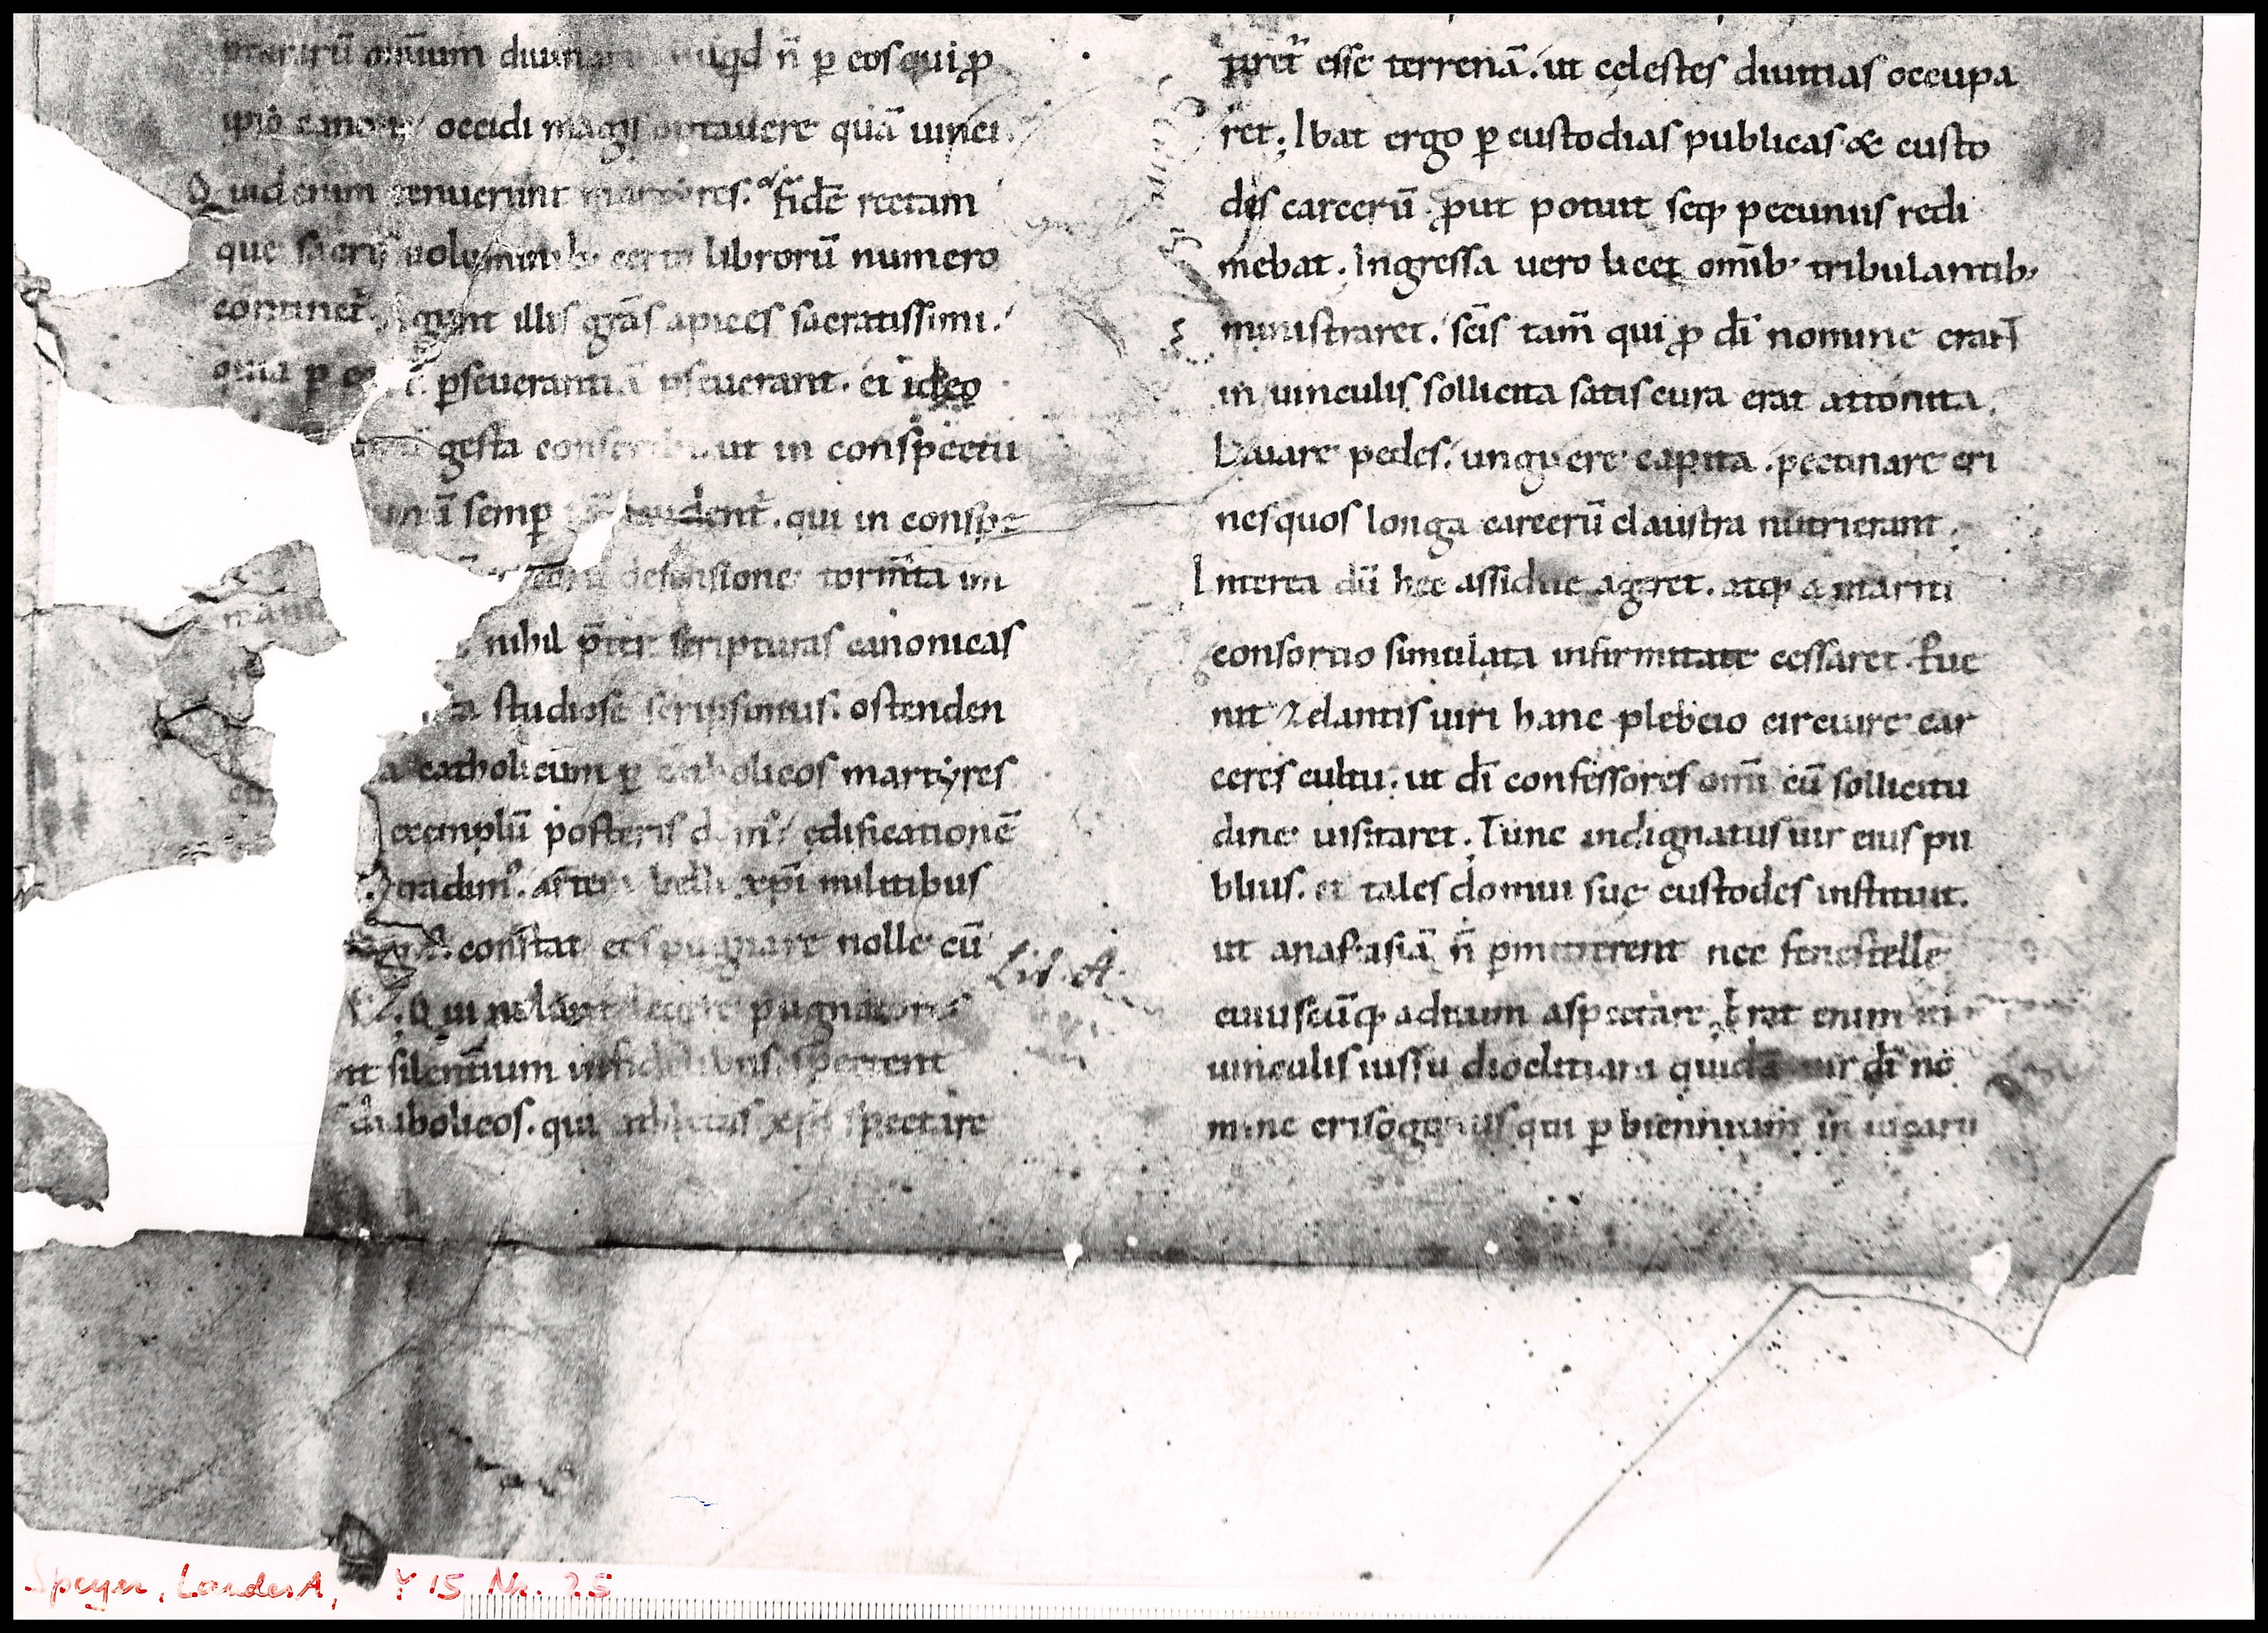 omnium diuinarum nūqd n̄ p̱ eos qui ꝓ
ipso occidi magis optauere quā uinci.
Quid enim tenuerunt martyres. fidē rectam
que sacris uoluminib; certo librorū numero
continet᷑. Agunt illis grās apices sacratissimi.
quia p̱ p̱seuerantiā p̱seuerant. et ideo
gesta ut in conspectu
semp̱ qui in conspe
defensione torm̄ta im
nihil p̄ter scripturas canonicas
studiose scripsimus. ostenden
catholicum p̱ catholicos martyres
exemplū posteris edificationē
tradim᷒. artem belli xp̄i militibus
constat eos pugnare nolle cū
Qui nolunt pugnatores
silentium infidelibus. spectent
diabolicos. qui athletas xp̄i spectare
Lit. A.
esse terrenā. ut celestes diuitias occupa
ret. Ibat ergo p̱ custodias publicas & custo
dis carcerū ꝓut potuit seq; pecuniis redi
mebat. Ingressa uero licet om̄ib; tribulantib;
ministraret. sc̄is tam̄ qui ꝓ dī nomine erant
in uinculis sollicita satis cura erat attonita.
Lauare pedes. unguere capita. pectinare cri
nes quos longa carcerū claustra nutrierant.
Interea dū hec assidue ageret. atq; a mariti
consortio simulata infirmitate cessaret. Fue
nit zelantis uiri hanc plebeio circuire car
ceres cultu. ut dī confessores omī cū sollicitu
dine uisitaret. Tunc indignatus uir eius pu
blius. et tales domui sue custodes instituit.
ut anastasiā n̄ p̱mitterent nec fenestelle
cuiuscūq; aditum aspectare. Erat enim in
uinculis iussu diocletiani quidā uir dī no
mine crisogonus qui p̱ biennium in uicarii
Speyer, LandesA, Y 15 Nr. 25